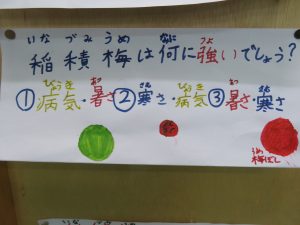 いなづみうめ なに つよ
稲積梅は何に強いでしょう?
びょうき あつ さむ びょうき あつ さむ
①病気・暑さ②寒さ・病気③暑さ・寒さ
うめ
梅ぼし